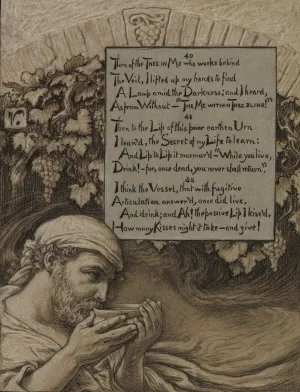 40
Then of the THEE in ME who works behind
The Veil, I lifted up my hands to find
A Lamp amid the Darkness; and I heard,
As from Without—"THE ME WITHIN THEE BLIND!"
41
Then to the Lip of this poor earthen Urn
I lean'd, the Secret of my Life to learn:
And Lip to Lip it murmur'd—"While you live,
Drink!—for, once dead, you never shall return."
42
I think the Vessel, that with fugitive
Articulation answer'd, once did live,
And drink; and Ah! the passive Lip I kiss'd,
How many Kisses might it take—and give!